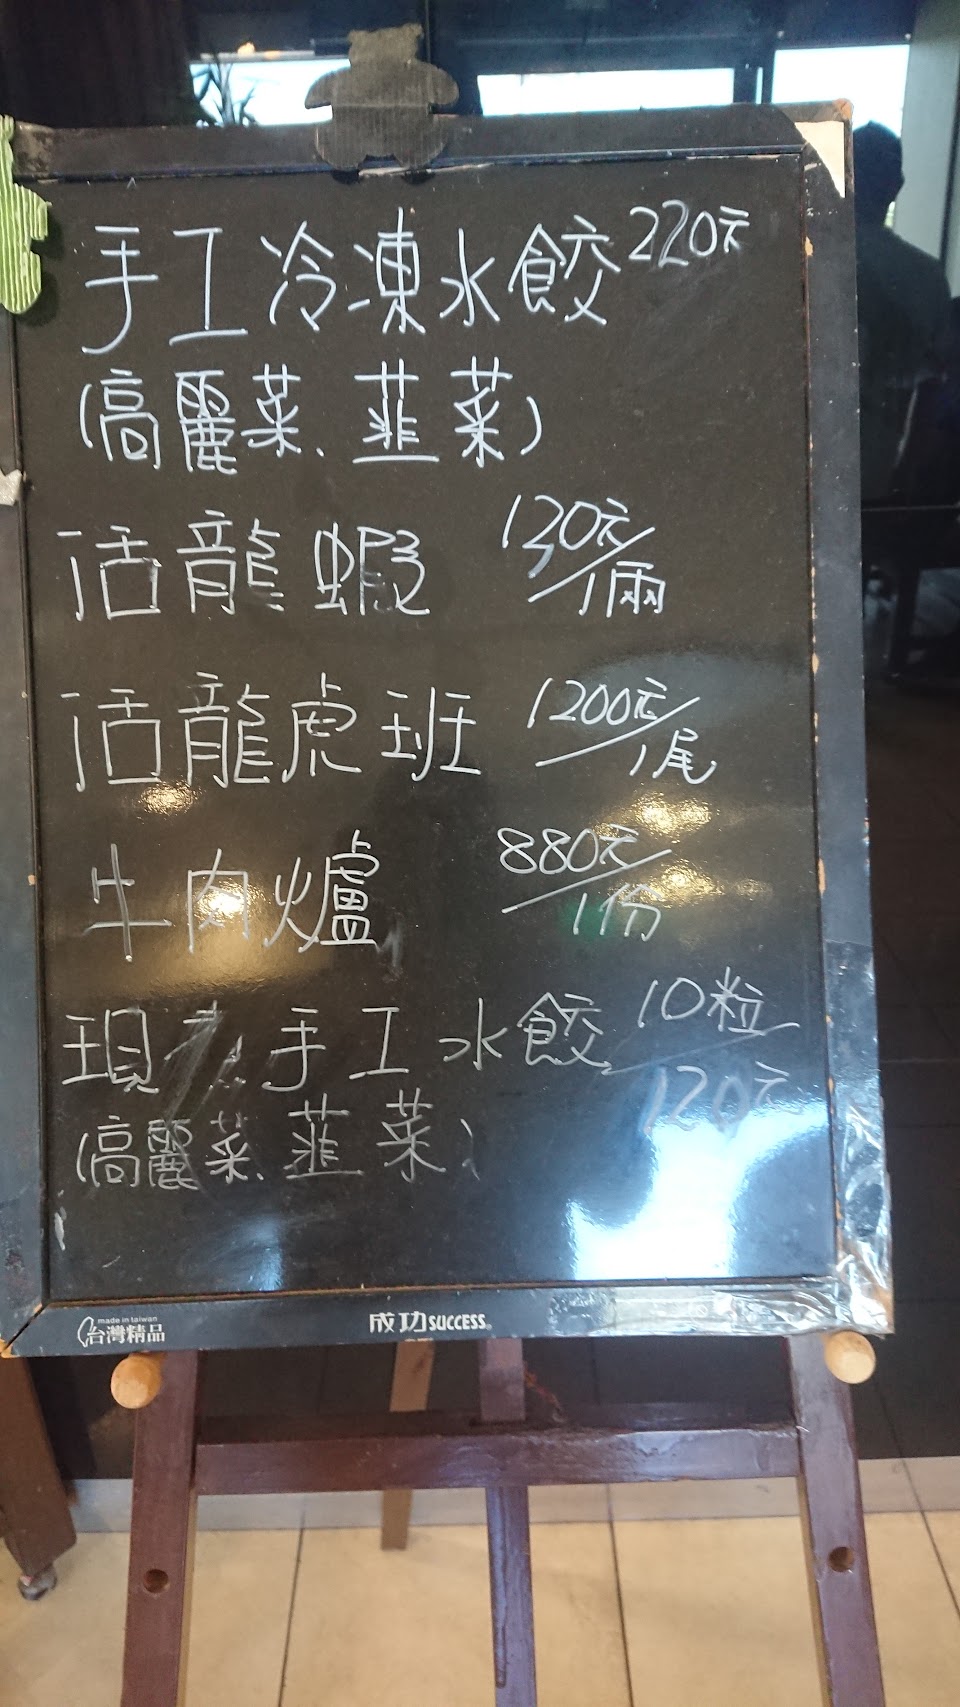 手工冷凍水餃220元
(高麗菜、韮菜)
活龍蝦 130元/1兩
活龍虎班 1200元/1尾
牛肉爐 880元/1份
現 手工水餃 10粒/120元
(高麗菜、韮菜)
made in taiwan
台灣精品
成功SUCCESS